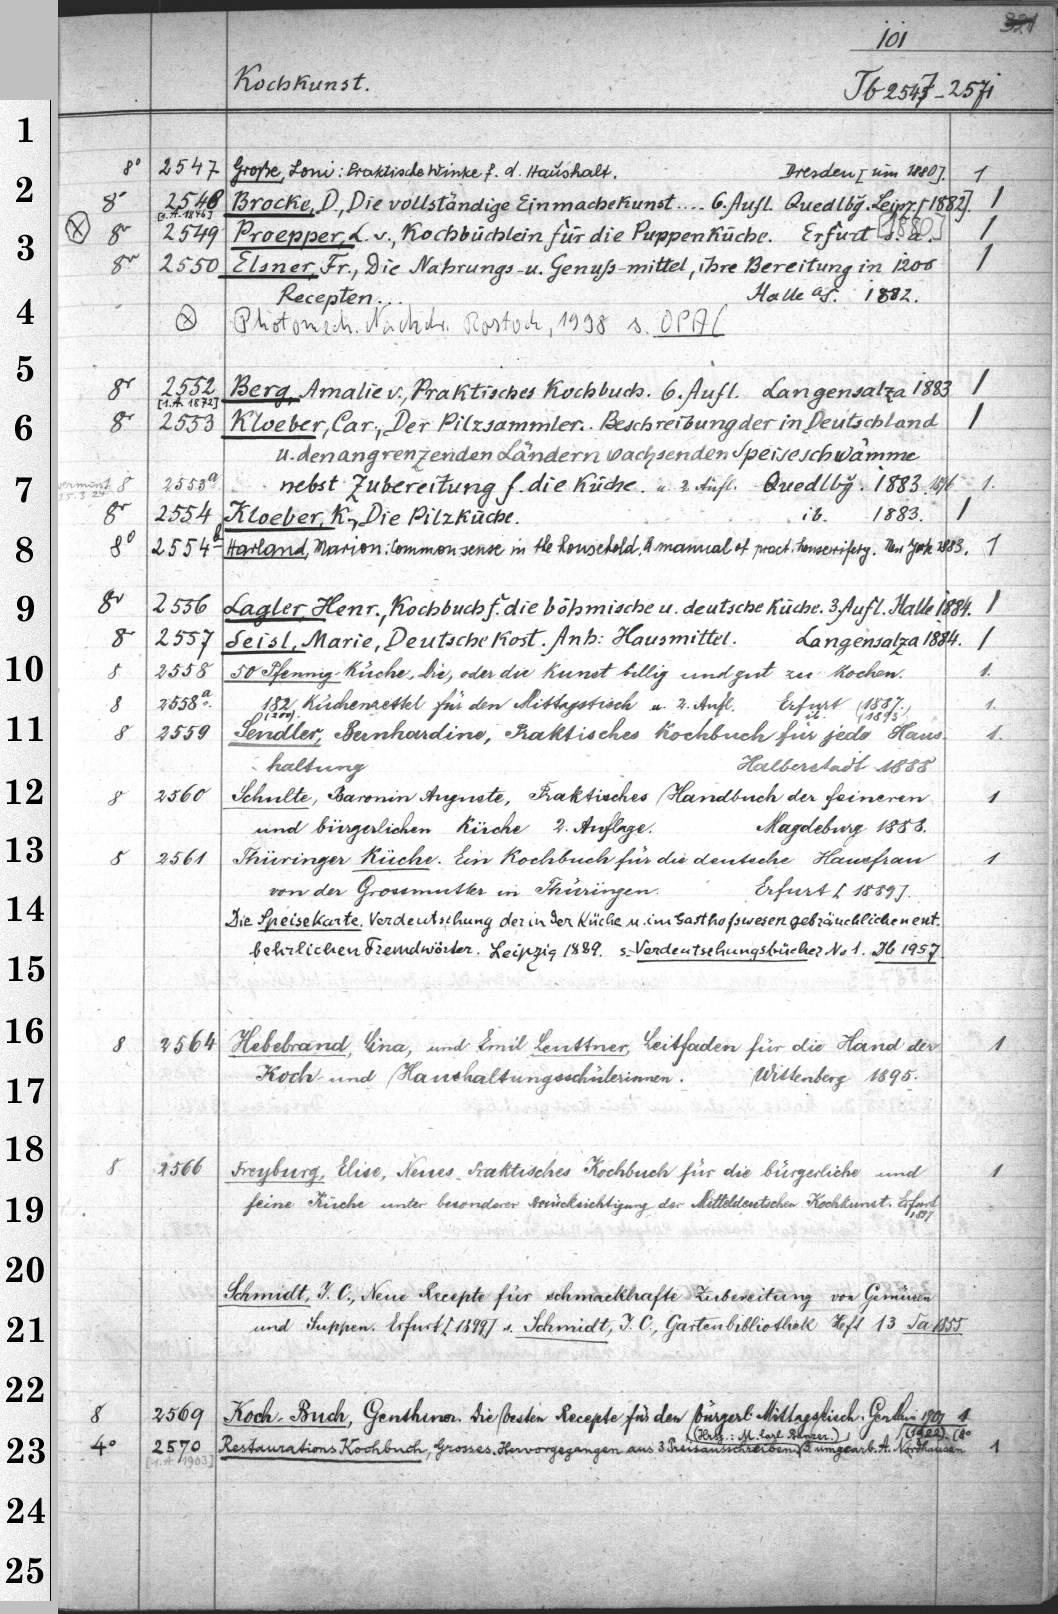 321
101
Kochkunst. Tb 2547-2571
1
8° 2547 Große, Loni: Praktische Winke f. d. Haushalt. Dresden [um 1880]. 1
2
8° 2548 Brocke, D., Die vollständige Einmachekunst.... 6. Aufl. Quedlbg. Leipz. [1882]. 1
[1.A. 1876]
8° 2549 Proepper, L. v., Kochbüchlein für die Puppenküche. Erfurt s. a. [1880] 1
3
8° 2550 Elsner, Fr., Die Nahrungs- u. Genuß-mittel, ihre Bereitung in 1200 1
Recepten... Halle a/S. 1882.
4
Photomech. Nachdr. Rostock, 1998 s. OPAC
5
8° 2552 Berg, Amalie v., Praktisches Kochbuch. 6. Aufl. Langensalza 1883 1
[1.A. 1872]
6
8° 2553 Kloeber, Car., Der Pilzsammler.. Beschreibung der in Deutschland 1
u. den angrenzenden Ländern wachsenden Speiseschwämme
7
8 2553a nebst Zubereitung f. die Küche. u. 2. Aufl. Quedlbg. 1883 1.
8° 2554 Kloeber, K., Die Pilzküche. ib. 1883. 1
8
8° 2554b Harland, Marion: Common sense in the household. A manual of pract. housewifery. New York 1883. 1
9
8° 2556 Lagler, Henr., Kochbuch f. die böhmische u. deutsche Küche. 3. Aufl. Halle 1884. 1
8° 2557 Leisl, Marie, Deutsche Kost. Anh: Hausmittel. Langensalza 1884. 1
10
8 2558 50 Pfennig-Küche, Die, oder die Kunst billig und gut zu kochen. 1.
8 2558a. 182 Küchenzettel für den Mittagstisch u. 2. Aufl. Erfurt (1887.) 1.
(200) ib. (1893)
11
8 2559 Sendler, Bernhardine, Praktisches Kochbuch für jede Haus- 1.
haltung Halberstadt 1888
12
8 2560 Schulte, Baronin Auguste, Praktisches Handbuch der feineren 1
und bürgerlichen Küche 2. Auflage. Magdeburg 1888.
13
8 2561 Thüringer Küche. Ein Kochbuch für die deutsche Hausfrau 1
von der Grossmutter in Thüringen. Erfurt [1889].
14
Die Speisekarte. Verdeutschung der in der Küche u. im Gasthofswesen gebräuchlichen ent-
behrlichen Fremdwörter. Leipzig 1889. s. Verdeutschungsbücher No 1. Ib 1957
15
16
8 2564 Hebebrand, Gina, und Emil Lenttner, Leitfaden für die Hand der 1
Koch- und Haushaltungsschülerinnen. Wittenberg 1895.
17
18
8 2566 Freyburg, Elise, Neues Praktisches Kochbuch für die bürgerliche und 1
19
feine Küche unter besonderer Berücksichtigung der Mitteldeutschen Kochkunst. Erfurt
1897
20
Schmidt, J. C., Neue Recepte für schmackhafte Zubereitung von Gemüsen
21
und Suppen. Erfurt [1899] s. Schmidt, J. C., Gartenbibliothek Heft 13 Ta 1855
22
8 2569 Koch-Buch, Genthiner. Die besten Recepte für den bürgerl. Mittagstisch. Genthin 1907 1
(Hrsg.: M. Carl Banzer.) (1922). (8°
23
4° 2570 Restaurations Kochbuch, Grosses. Hervorgegangen aus 3 Preisausschreiben. 3. umgearb. A. Nordhausen 1
[1.A. 1903]
24
25